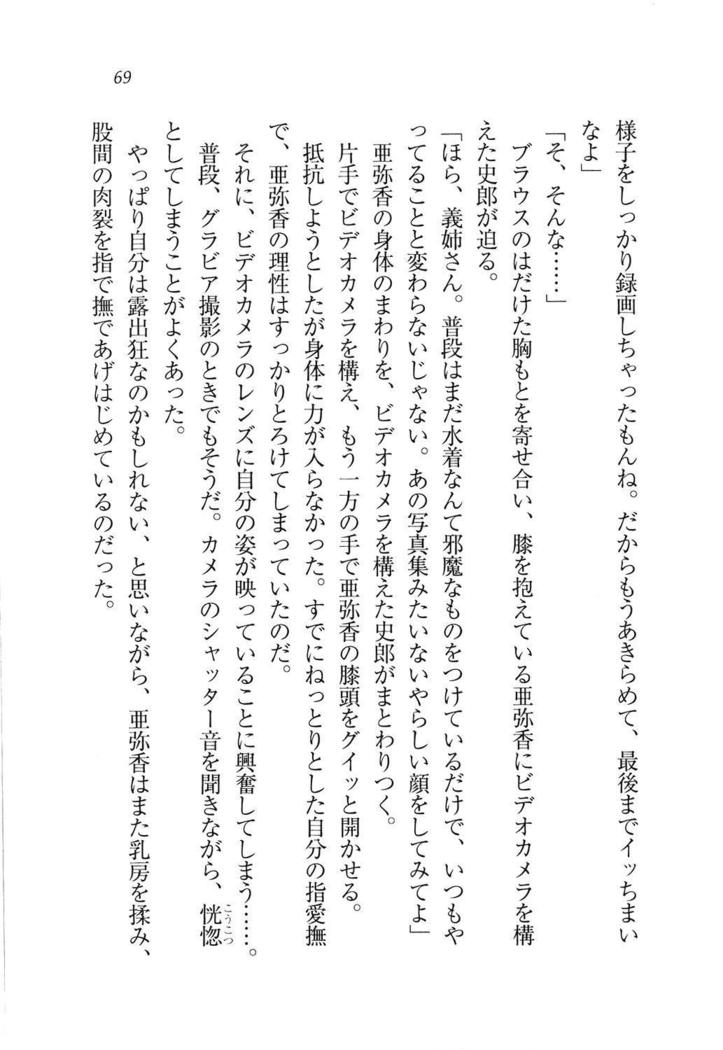 69
様子をしっかり録画しちゃったもんね。だからもうあきらめて、最後までイッちまい
なよ」
「そ、そんな……」
ブラウスのはだけた胸もとを寄せ合い、膝を抱えている亜弥香にビデオカメラを構
えた史郎が迫る。
「ほら、義姉さん。普段はまだ水着なんて邪魔なものをつけているだけで、いつもや
ってることと変わらないじゃない。あの写真集みたいないやらしい顔をしてみてよ」
亜弥香の身体のまわりを、ビデオカメラを構えた史郎がまとわりつく。
片手でビデオカメラを構え、もう一方の手で亜弥香の膝頭をグイッと開かせる。
抵抗しようとしたが身体に力が入らなかった。すでにねっとりとした自分の指愛撫
で、亜弥香の理性はすっかりとろけてしまっていたのだ。
それに、ビデオカメラのレンズに自分の姿が映っていることに興奮してしまう……。
普段、グラビア撮影のときでもそうだ。カメラのシャッター音を聞きながら、恍惚こうこつ
としてしまうことがよくあった。
やっぱり自分は露出狂なのかもしれない、と思いながら、亜弥香はまた乳房を揉み、
股間の肉裂を指で撫であげはじめているのだった。